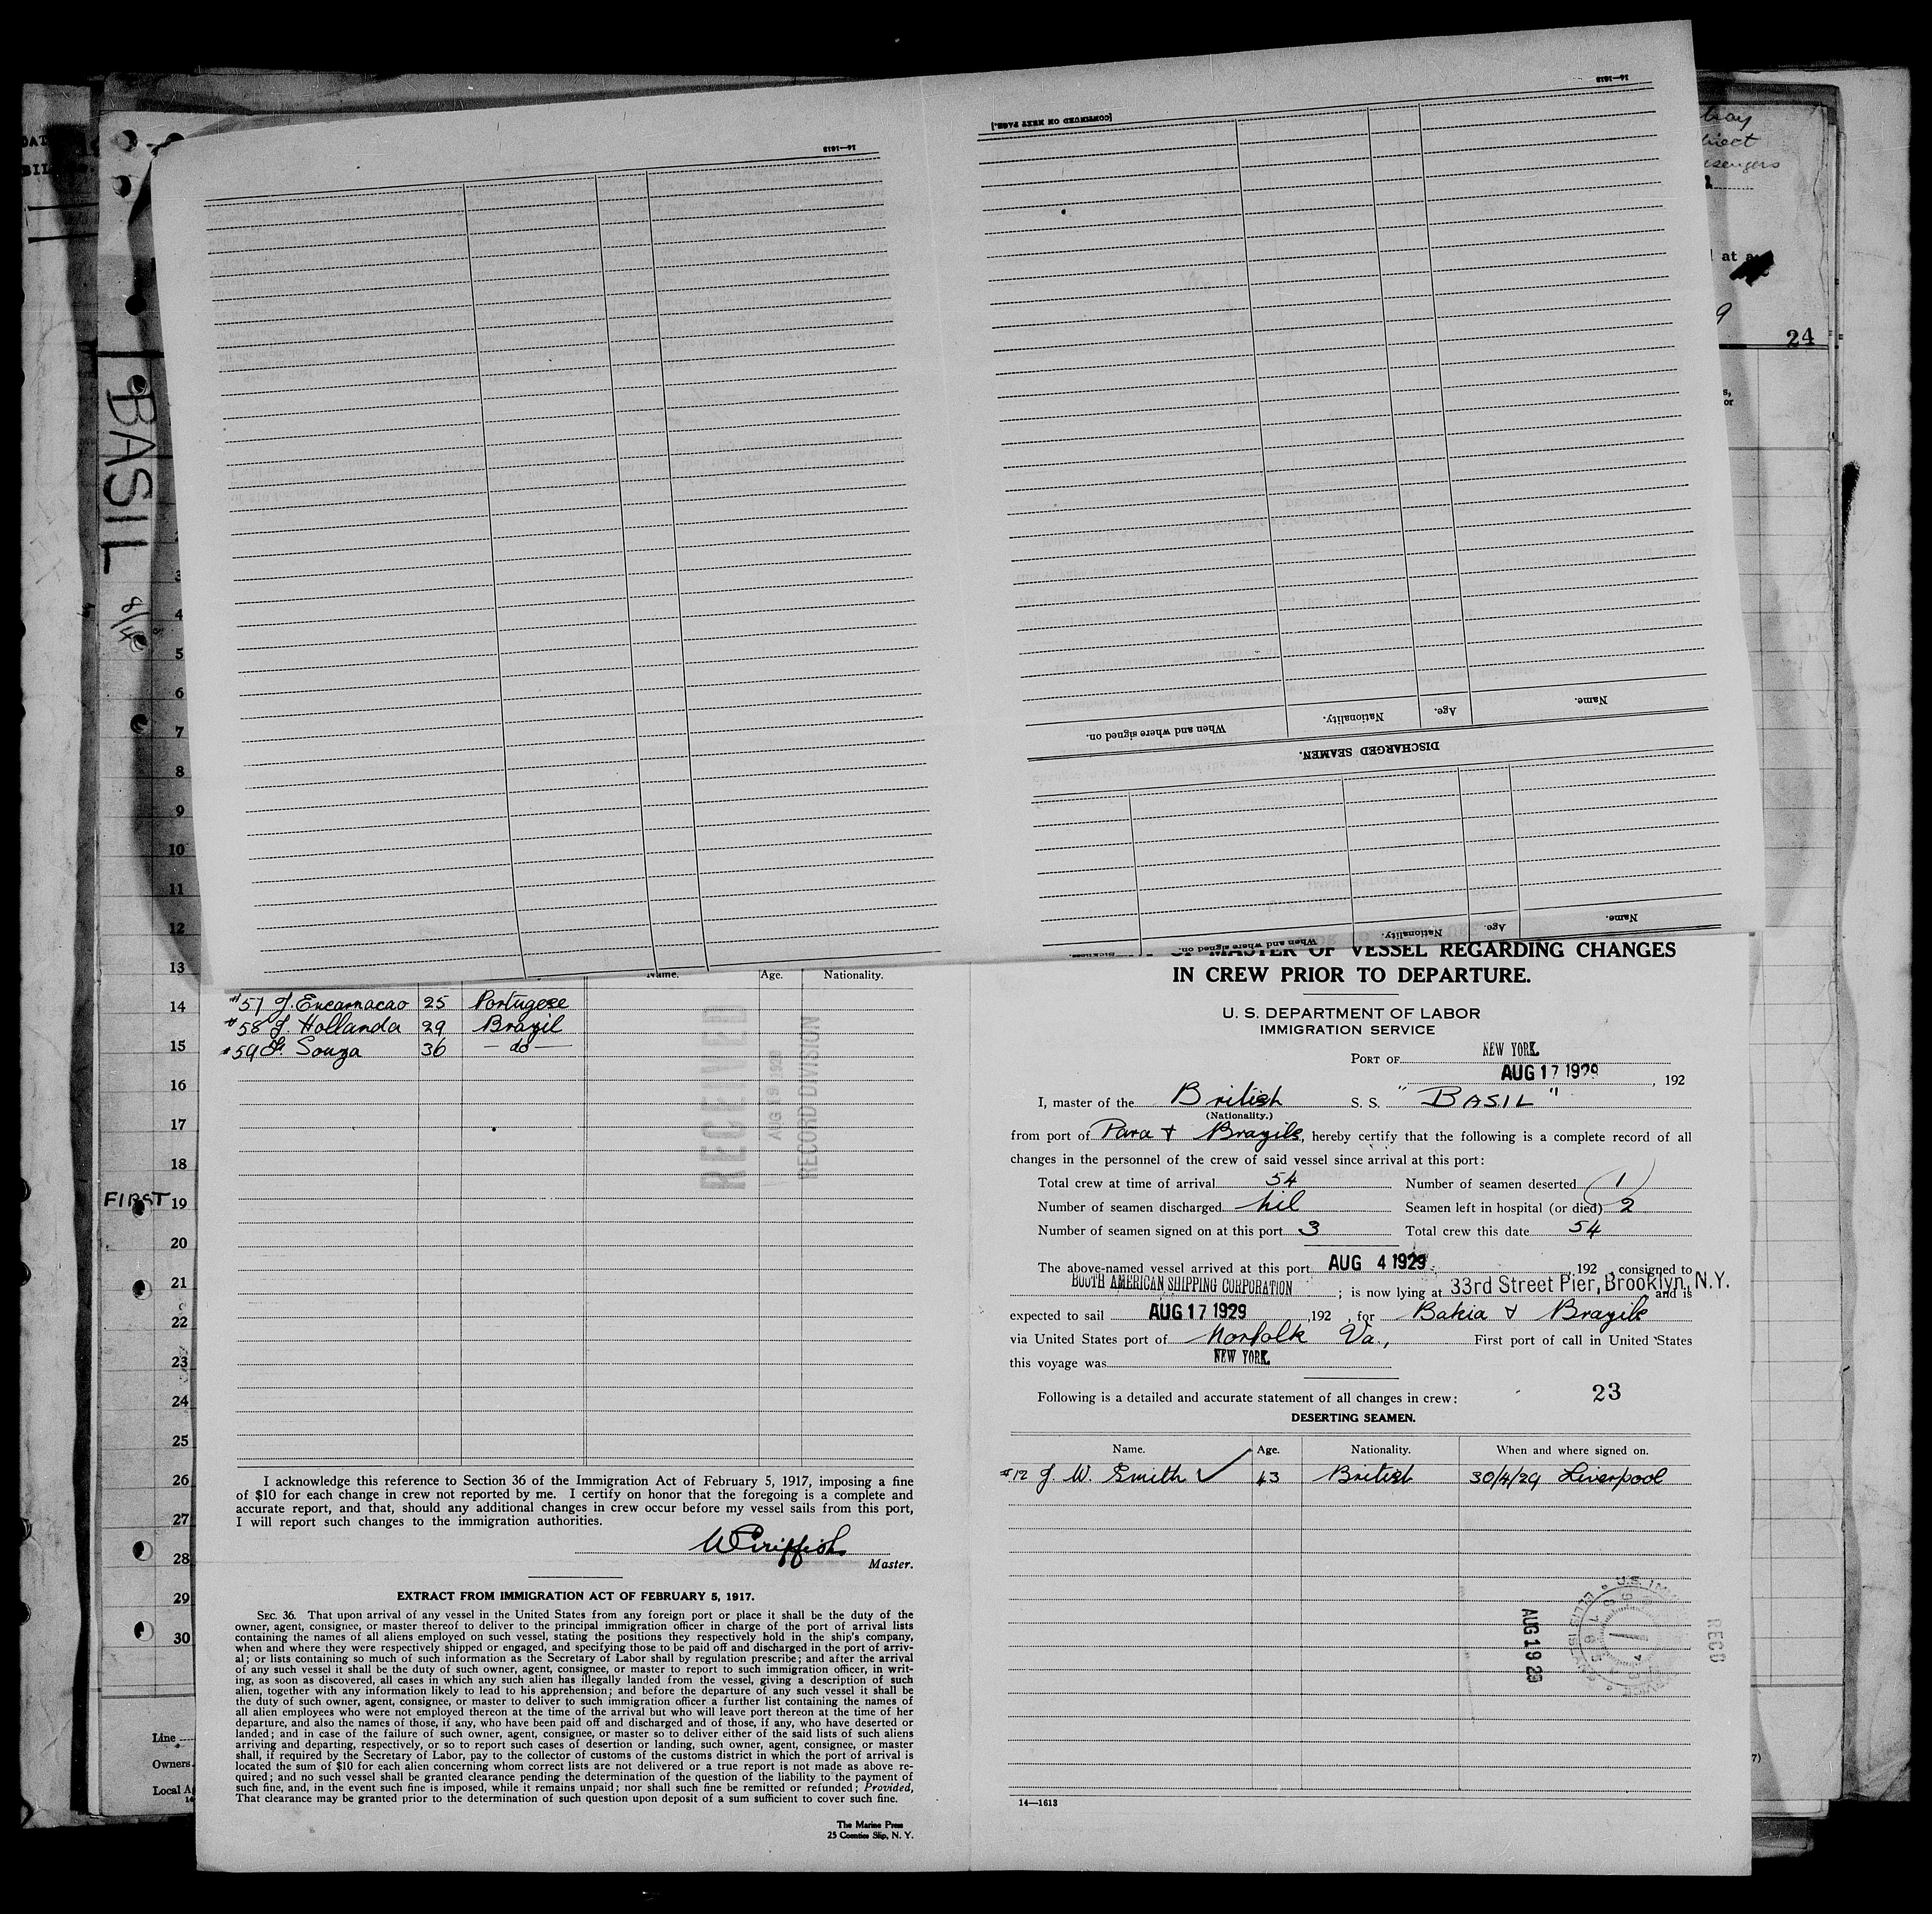 14—1613
14—1613
[CONTINUED ON NEXT PAGE.]
at
24
BASIL
DISCHARGED SEAMEN.
Name. Age. Nationality. When and where signed on.
Name. Age. Nationality. When and where signed on.
3
4
5
6
7
8
9
10
11
12
13
14
15
16
17
18
FIRST 19
20
21
22
23
24
25
26
27
28
29
30
Line
Owners
Local
Name. Age. Nationality.
#57 J. Encarnacao 25 Portugese
#58 J Hollanda 29 Brazil
#59 F. Souza 36 — do —
RECEIVED
AUG 19 1929
RECORD DIVISION
I acknowledge this reference to Section 36 of the Immigration Act of February 5, 1917, imposing a fine
of $10 for each change in crew not reported by me. I certify on honor that the foregoing is a complete and
accurate report, and that, should any additional changes in crew occur before my vessel sails from this port,
I will report such changes to the immigration authorities.
Master.
EXTRACT FROM IMMIGRATION ACT OF FEBRUARY 5, 1917.
SEC. 36. That upon arrival of any vessel in the United States from any foreign port or place it shall be the duty of the
owner, agent, consignee, or master thereof to deliver to the principal immigration officer in charge of the port of arrival lists
containing the names of all aliens employed on such vessel, stating the positions they respectively hold in the ship's company,
when and where they were respectively shipped or engaged, and specifying those to be paid off and discharged in the port of arriv-
al; or lists containing so much of such information as the Secretary of Labor shall by regulation prescribe; and after the arrival
of any such vessel it shall be the duty of such owner, agent, consignee, or master to report to such immigration officer, in writ-
ing, as soon as discovered, all cases in which any such alien has illegally landed from the vessel, giving a description of such
alien, together with any information likely to lead to his apprehension; and before the departure of any such vessel it shall be
the duty of such owner, agent, consignee, or master to deliver to such immigration officer a further list containing the names of
all alien employees who were not employed thereon at the time of the arrival but who will leave port thereon at the time of her
departure, and also the names of those, if any, who have been paid off and discharged and of those, if any, who have deserted or
landed; and in case of the failure of such owner, agent, consignee, or master so to deliver either of the said lists of such aliens
arriving and departing, respectively, or so to report such cases of desertion or landing, such owner, agent, consignee, or master
shall, if required by the Secretary of Labor, pay to the collector of customs of the customs district in which the port of arrival is
located the sum of $10 for each alien concerning whom correct lists are not delivered or a true report is not made as above re-
quired; and no such vessel shall be granted clearance pending the determination of the question of the liability to the payment of
such fine, and, in the event such fine is imposed, while it remains unpaid; nor shall such fine be remitted or refunded; Provided,
That clearance may be granted prior to the determination of such question upon deposit of a sum sufficient to cover such fine.
The Marine Press
25 Coenties Slip, N. Y.
OF MASTER OF VESSEL REGARDING CHANGES
IN CREW PRIOR TO DEPARTURE.
U. S. DEPARTMENT OF LABOR
IMMIGRATION SERVICE
PORT OF NEW YORK
AUG 17 1929, 192
I, master of the British S. S. "BASIL"
(Nationality.)
from port of Para & Brazils, hereby certify that the following is a complete record of all
changes in the personnel of the crew of said vessel since arrival at this port:
Total crew at time of arrival 54 Number of seamen deserted 1
Number of seamen discharged nil Seamen left in hospital (or died) 2
Number of seamen signed on at this port 3 Total crew this date 54
The above-named vessel arrived at this port AUG 4 1929, 192 , consigned to
BOOTH AMERICAN SHIPPING CORPORATION ; is now lying at 33rd Street Pier, Brooklyn, N.Y. and is
expected to sail AUG 17 1929, 192 , for Bahia & Brazils
via United States port of Norfolk Va., First port of call in United States
this voyage was NEW YORK
Following is a detailed and accurate statement of all changes in crew: 23
DESERTING SEAMEN.
Name. Age. Nationality. When and where signed on.
#12 J. W. Smith ✓ 43 British 30/4/29 Liverpool
AUG 19 29
REC'D
14—1613